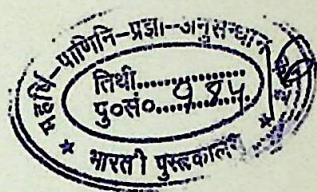 महर्षि-पाणिनि-प्रज्ञा--अनुसन्धान
तिथी..................
पु०सं०...१९५....
* भारती पुस्तकालय *